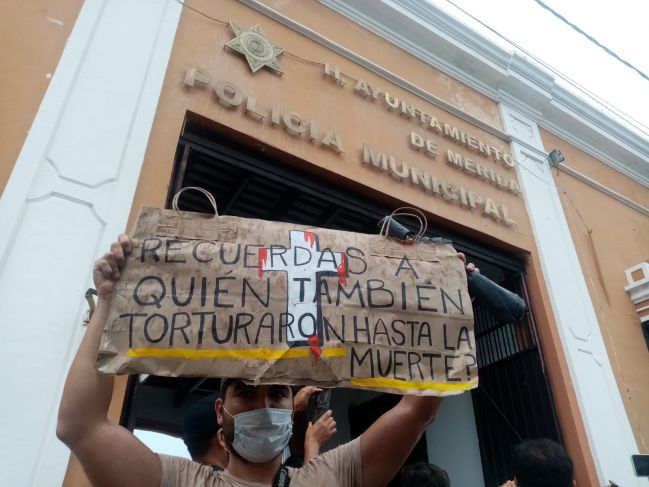 H. AYUNTAMIENTO
DE MERIDA
POLICIA MUNICIPAL
RECUERDAS A
QUIÉN TAMBIÉN
TORTURARON HASTA LA
MUERTE?